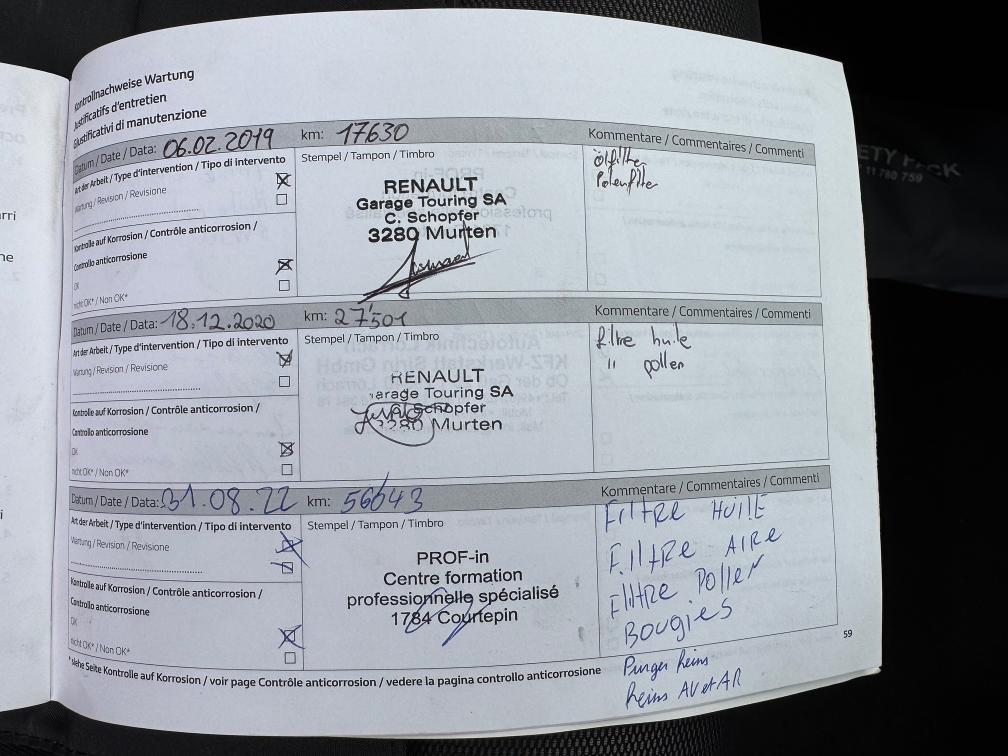 Kontrollnachweise Wartung
Justificatifs d'entretien
Giustificativi di manutenzione
Datum / Date / Data: 06.02.2019 km: 17630 Kommentare / Commentaires / Commenti
Art der Arbeit / Type d'intervention / Tipo di intervento
Wartung / Revision / Revisione
Kontrolle auf Korrosion / Contrôle anticorrosion /
Controllo anticorrosione
OK
nicht OK* / Non OK*
Stempel / Tampon / Timbro
RENAULT
Garage Touring SA
C. Schopfer
3280 Murten
Ölfilter
Polenfilter
Datum / Date / Data: 18.12.2020 km: 27'501 Kommentare / Commentaires / Commenti
Art der Arbeit / Type d'intervention / Tipo di intervento
Wartung / Revision / Revisione
Kontrolle auf Korrosion / Contrôle anticorrosion /
Controllo anticorrosione
OK
nicht OK* / Non OK*
Stempel / Tampon / Timbro
RENAULT
arage Touring SA
Schopfer
3280 Murten
filtre huile
" pollen
Datum / Date / Data: 31.08.22 km: 56643 Kommentare / Commentaires / Commenti
Art der Arbeit / Type d'intervention / Tipo di intervento
Wartung / Revision / Revisione
Kontrolle auf Korrosion / Contrôle anticorrosion /
Controllo anticorrosione
OK
nicht OK* / Non OK*
Stempel / Tampon / Timbro
PROF-in
Centre formation
professionnelle spécialisé
1784 Courtepin
FILTRE HUILE
FILTRE AIRE
FILTRE POLLEN
BOUGIES
Purger freins
freins AV et AR
59
*siehe Seite Kontrolle auf Korrosion / voir page Contrôle anticorrosion / vedere la pagina controllo anticorrosione
ETY PACK
11 780 759